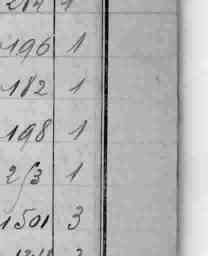 196 1
182 1
198 1
253 1
1501 3